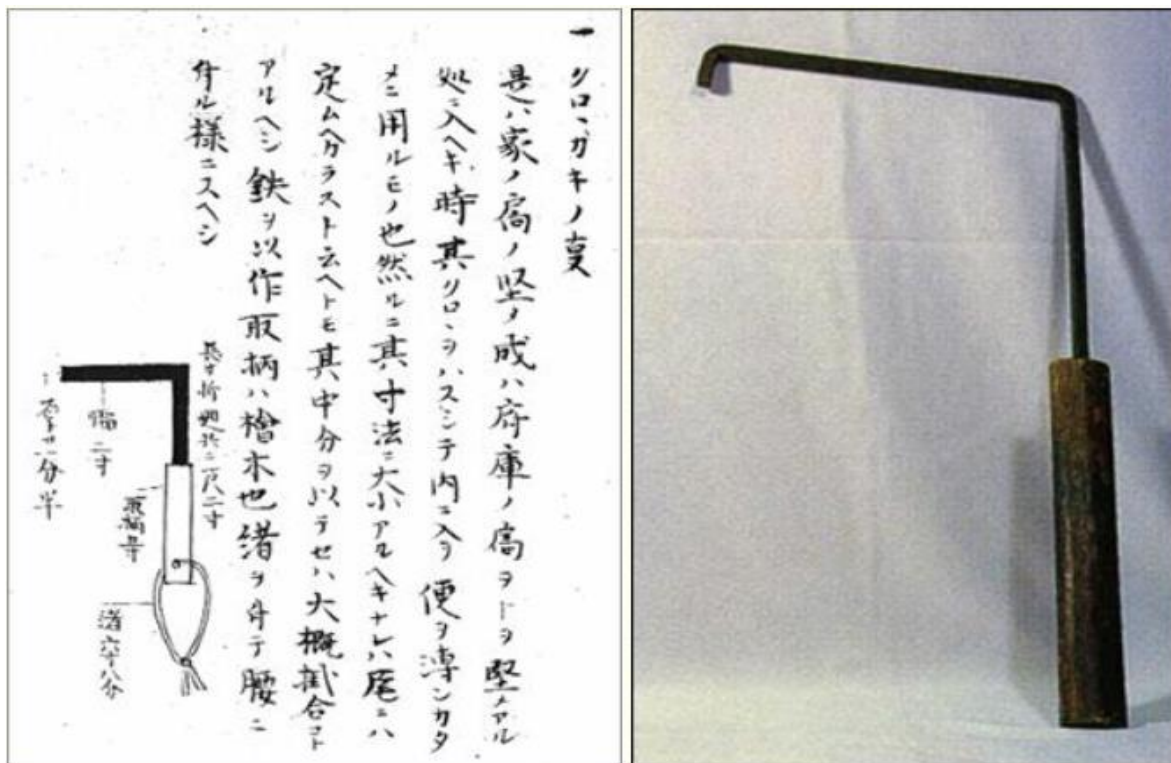 一リロヽガキノ叓
是ハ家ノ扃ノ堅ノ或ハ府庫ノ扃ヲトヲ堅メアル
処ニ入ヘキ時其リロヽヲハスシテ内ニ入ヲ便ヲ漙ンカタ
メニ用ルモノ也然ルニ其寸法ニ大小アルヘキナレハ ニハ
定ムヘカラスト云ヘトモ其中分ヲ以テセハ大概掛合コト
アルヘシ鉄ヲ以作取柄ハ檜木也緒ヲ 腰ニ
付ル様ニスヘシ
長サ折処 二寸
二寸
分半
取柄
緒六寸八分